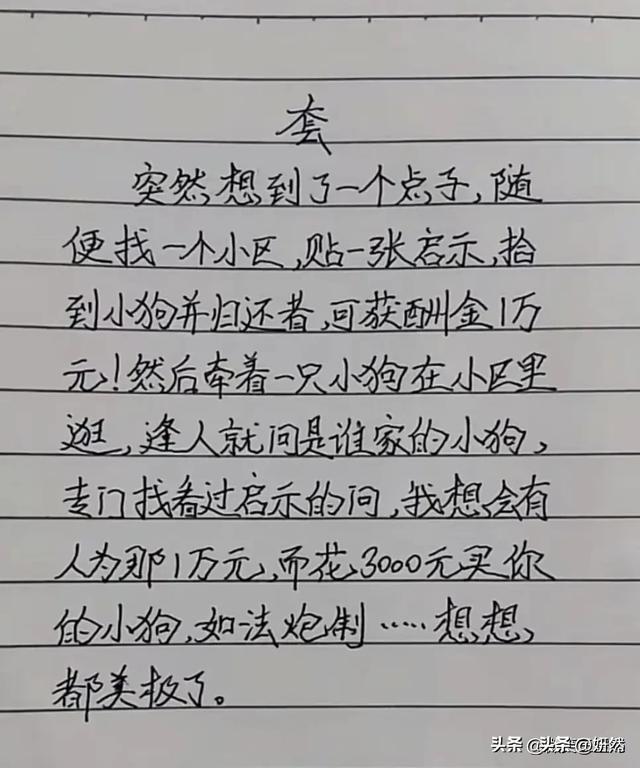 套
突然想到了一个点子，随
便找一个小区，贴一张启示，拾
到小狗并归还者，可获酬金1万
元！然后牵着一只小狗在小区里
逛，逢人就问是谁家的小狗，
专门找看过启示的问，我想会有
人为那1万元，而花3000元买你
的小狗，如法炮制……想想，
都美极了。
头条 @妍然